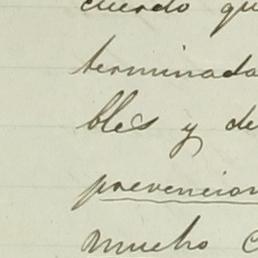 cuerdo qu
terminada
bles y de
prevencion
mucho c